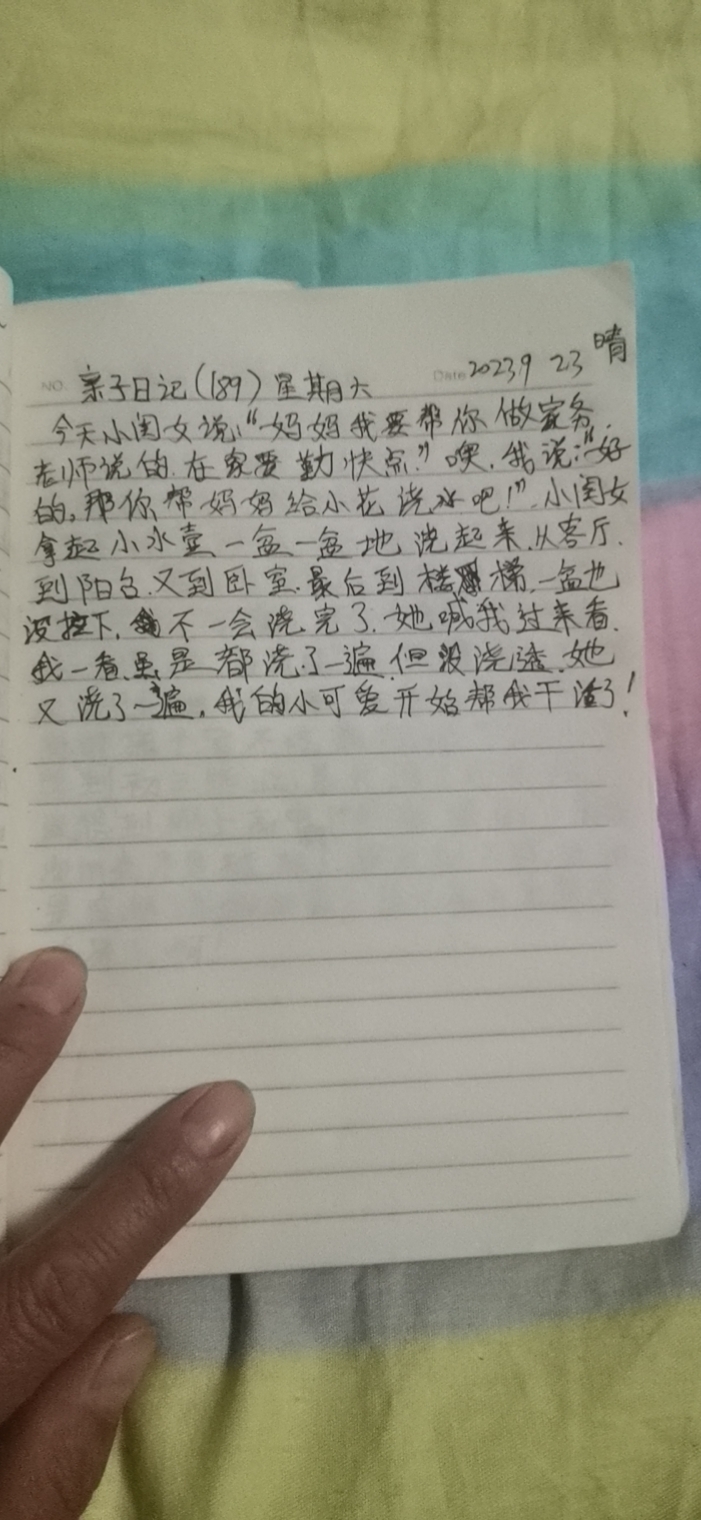 NO. 亲子日记(189) 星期六 Date 2023 9 23 晴
今天小闺女说:“妈妈我要帮你做家务.
老师说的.在家要勤快点.”噢.我说:“好
的,那你帮妈妈给小花浇水吧!”.小闺女
拿起小水壶一盆一盆地浇起来.从客厅.
到阳台.又到卧室.最后到楼梯.一盆也
没拉下,不一会浇完了.她喊我过来看.
我一看.虽是都浇了一遍.但没浇透.她
又浇了一遍,我的小可爱开始帮我干活了!